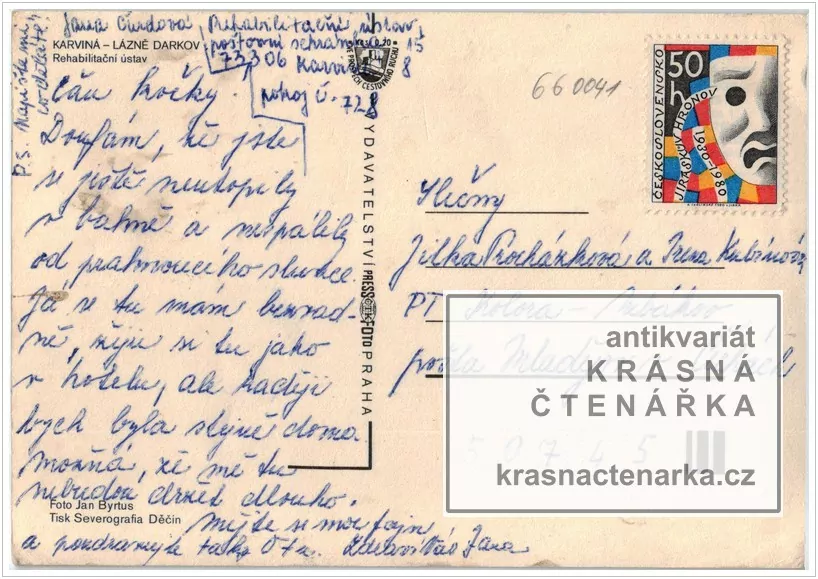 Jana Čurdová Rehabilitační ústav
poštovní schránka 15
73306 Karviná 8
pokoj č. 728
P.S. Napište mi
KARVINÁ - LÁZNĚ DARKOV
Rehabilitační ústav
Čau Kočky.
Doufám, že jste
se ještě neutopily
v bahně a nespálily
od prahnoucího slunce.
Já se tu mám bezvad-
ně, žiju si tu jako
v hotelu, ale raději
bych byla stejně doma
Možná, že mě tu
nebudou držet dlouho.
Mějte se moc fajn
a pozdravujte taky Otu. Zdraví Vás Jana
Foto Jan Byrtus
Tisk Severografia Děčín
VYDAVATELSTVÍ PRESSFOTO PRAHA
ČTK
660041
ČESKOSLOVENSKO
50
h
JIRÁSKŮV HRONOV
1930-1980
Slečny
Jilka Procházková a Irena Kubínová
PT
pošta Mladějov v Čechách
50745
antikvariát
KRÁSNÁ
ČTENÁŘKA
krasnactenarka.cz